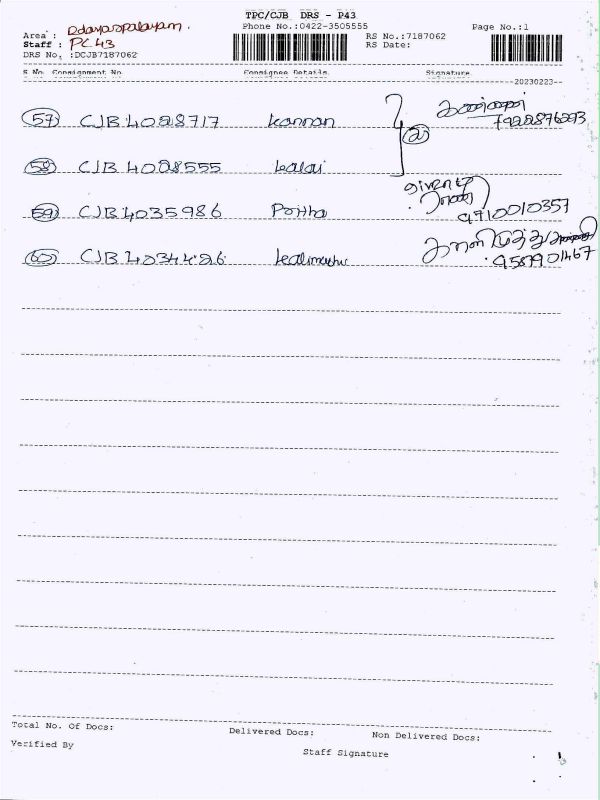 TPC/CJB DRS - P43
Phone No.:0422-3505555
Page No.:1
Area : Edayarpalayam
Staff : PC43
RS No.:7187062
RS Date:
DRS No. :DCJB7187062
S No. Consignment No. Consignee Details. Signature.
--20230223--
57 CJB4028717 Kannan 2 கண்ணன்
58 CJB4028555 Kalai
59 CJB4035986 9710010357
60 CJB4034426 Kalimuthu காளிமுத்து
9587901467
Total No. Of Docs: Delivered Docs: Non Delivered Docs:
Verified By Staff Signature